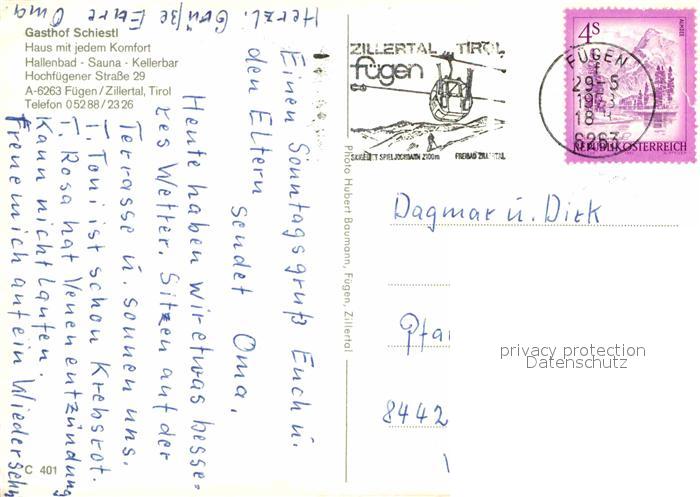 Gasthof Schiestl
Haus mit jedem Komfort
Hallenbad - Sauna - Kellerbar
Hochfügener Straße 29
A-6263 Fügen / Zillertal, Tirol
Telefon 0 52 88 / 23 26
Einen Sonntagsgruß Euch u.
den Eltern
sendet Oma.
Heute haben wir etwas besse-
res Wetter. Sitzen auf der
Terrasse u. sonnen uns.
T. Toni ist schon Krebsrot.
T. Rosa hat Venenentzündung
Kann nicht laufen.
Freue mich auf ein Wiedersehn
Herzl. Grüße Eure Oma
C 401
Photo Hubert Baumann, Fügen, Zillertal
ZILLERTAL TIROL
fügen
SKIGEBIET SPIELJOCHBAHN 2100m FREIBAD ZILLERTAL
FÜGEN
29-5
18
6263
4S
ALMSEE
REPUBLIK ÖSTERREICH
Dagmar u. Dirk
Pfar
8442
privacy protection
Datenschutz